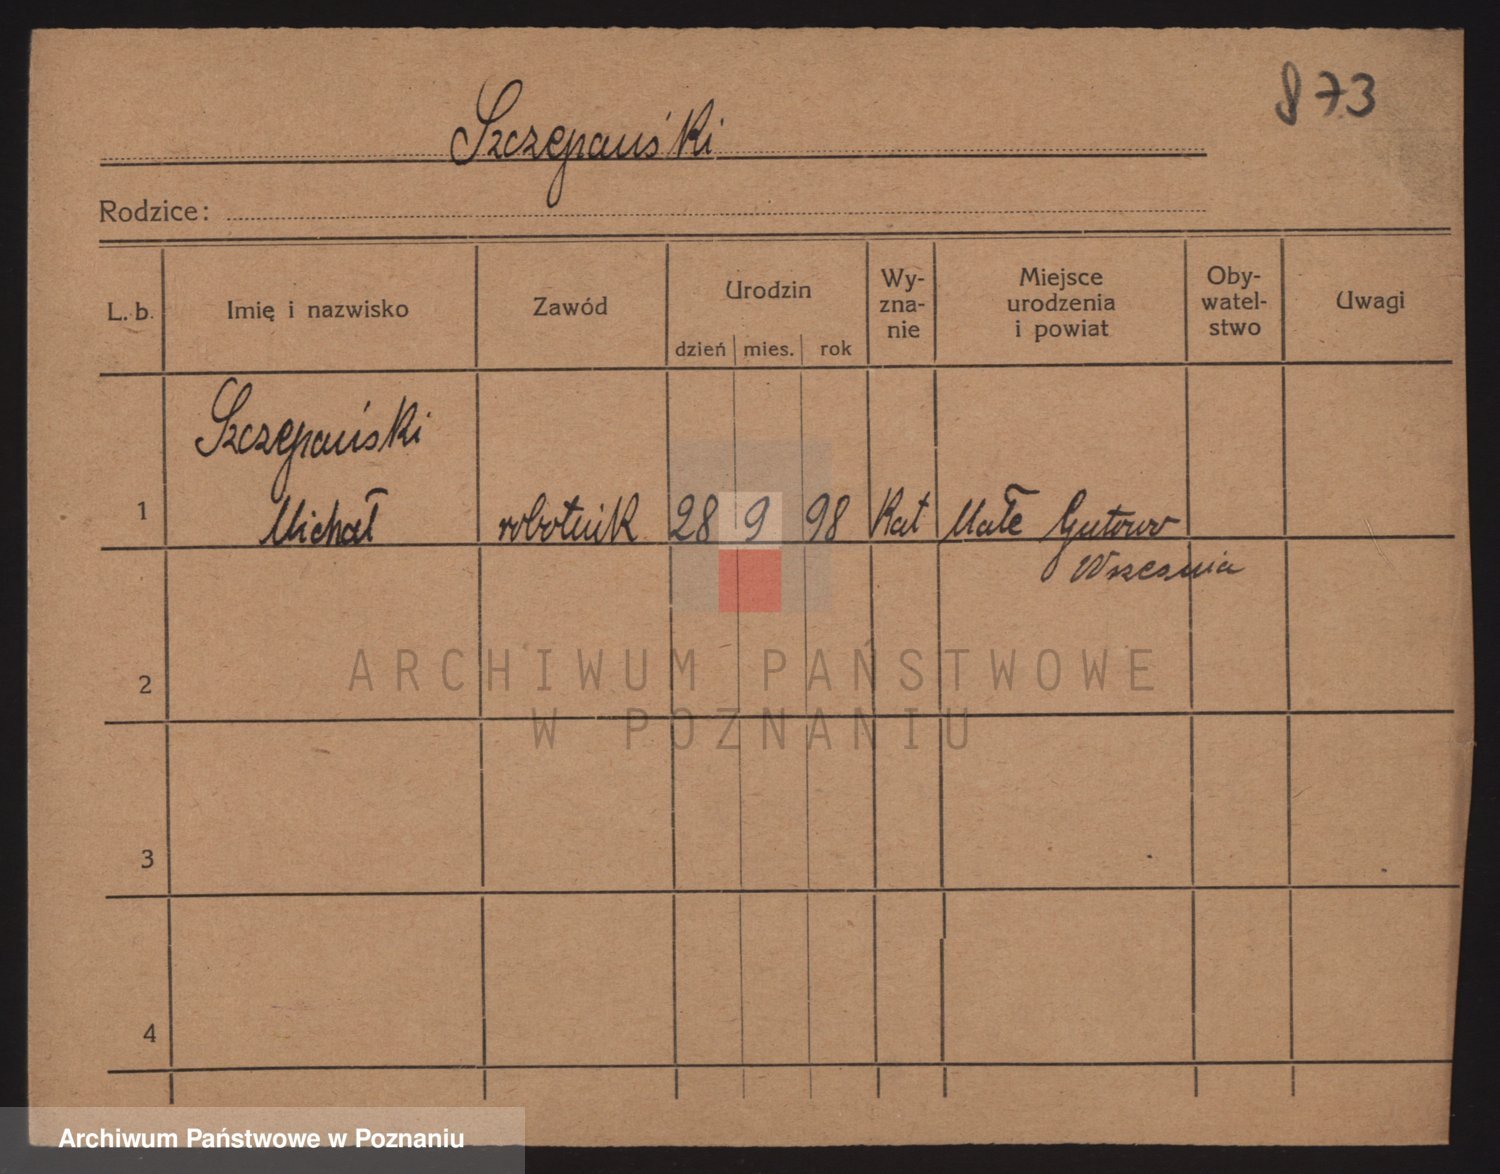 873
Szczepański
Rodzice:
L. b.
Imię i nazwisko
Zawód
Urodzin
dzień mies. rok
Wy-
zna-
nie
Miejsce
urodzenia
i powiat
Oby-
watel-
stwo
Uwagi
Szczepański
1 Michał robotnik 28 9 98 Kat Małe Gutowo
Września
2
3
4
ARCHIWUM PAŃSTWOWE
W POZNANIU
Archiwum Państwowe w Poznaniu